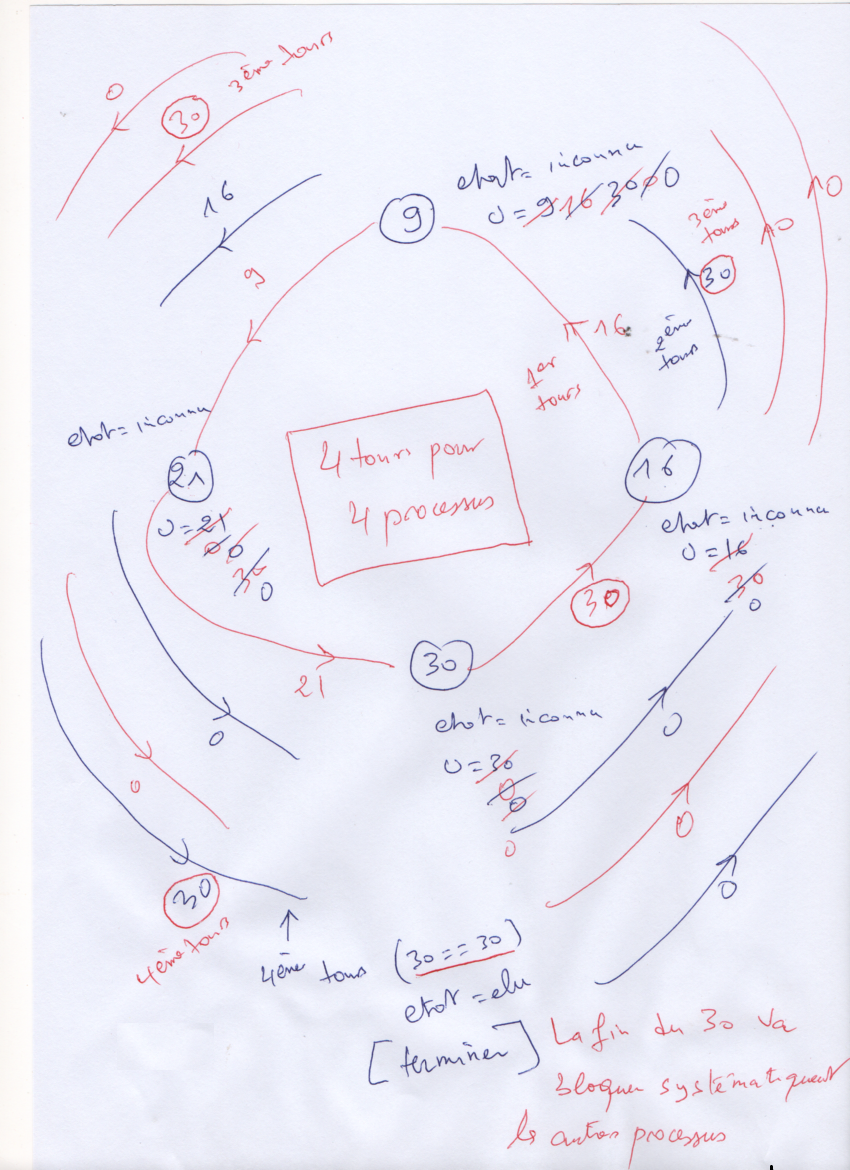 0
30
3ème tours
16
9
etat = inconnu
υ = 9 16 30 0 0
9
16
1er
tours
2ème
tours
3ème
tours
30
0
0
etat = inconnu
21
υ = 21
0 0
30
0
4 tours pour
4 processus
16
etat = inconnu
υ = 16
30
0
30
21
30
etat = inconnu
υ = 30
0
0
0
0
0
0
0
0
30
4ème tours
4ème tours
(30 == 30)
etat = elu
[terminer]
La fin du 30 va
bloquer systématiquement
les autres processus